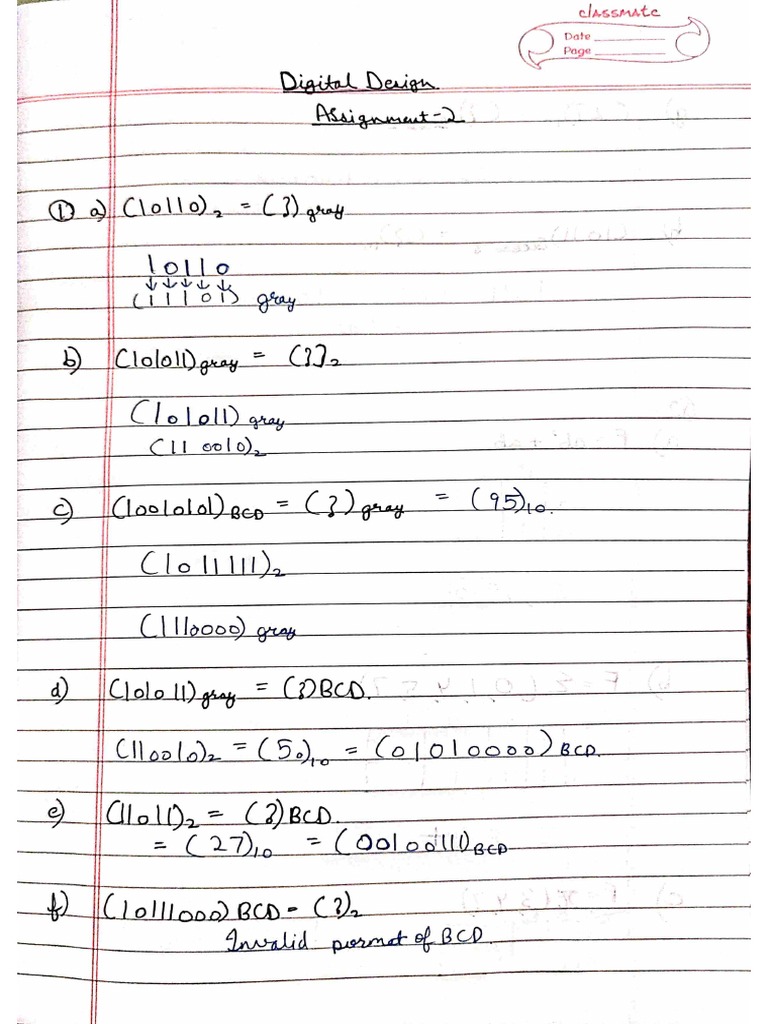 classmate
Date
Page
Digital Design
Assignment-2
① a) (10110)₂ = (?) gray
10110
↓↓↓↓↓
(11101) gray
b) (101011)gray = (?)₂
(101011) gray
(110010)₂
c) (1001010101)BCD = (?) gray = (95)₁₀.
(1011111)₂
(1110000) gray
d) (101011)gray = (?)BCD.
(110010)₂ = (50)₁₀ = (01010000) BCD.
e) (11011)₂ = (?)BCD.
= (27)₁₀ = (00100111)BCD
f) (10111000) BCD = (?)₂
Invalid format of BCD.